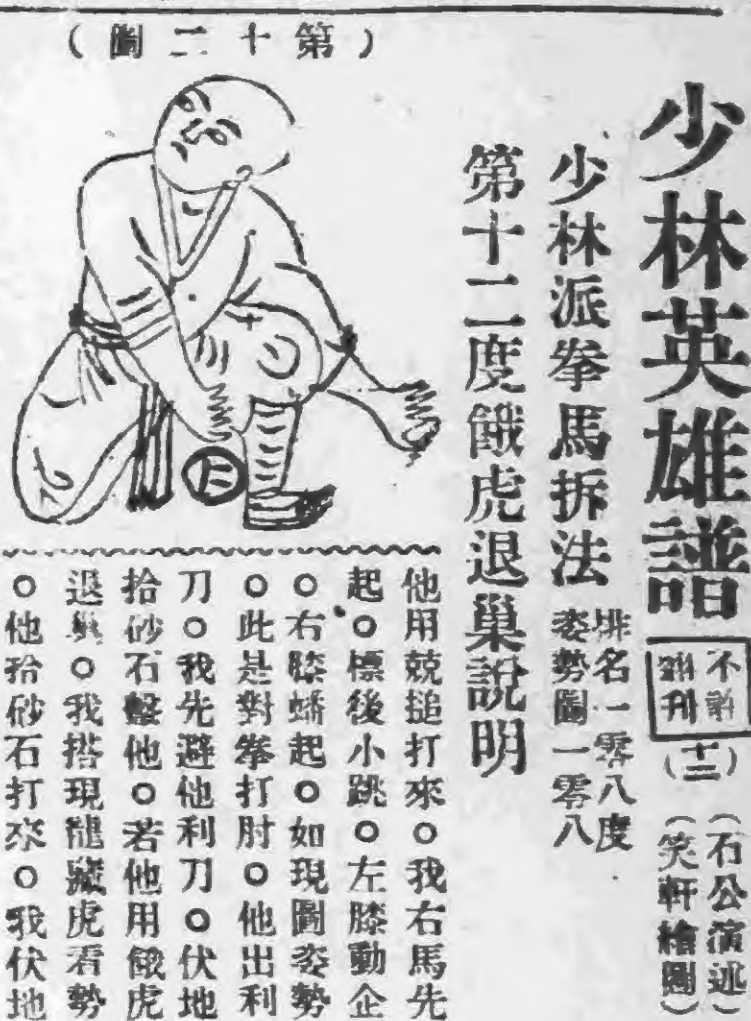 少林英雄譜
不許翻刊
(十二)
(石公演述)
(笑軒繪圖)
少林派拳馬拆法
排名一零八度
姿勢圖一零八
第十二度餓虎退巢說明
(第十二圖)
他用競搥打來○我右馬先
起○標後小跳○左膝動企
○右膝蟠起○如現圖姿勢
○此是對拳打肘○他出利
刀○我先避他利刀○伏地
拾砂石擊他○若他用餓虎
退巢○我搭現龍藏虎看勢
○他拾砂石打來○我伏地